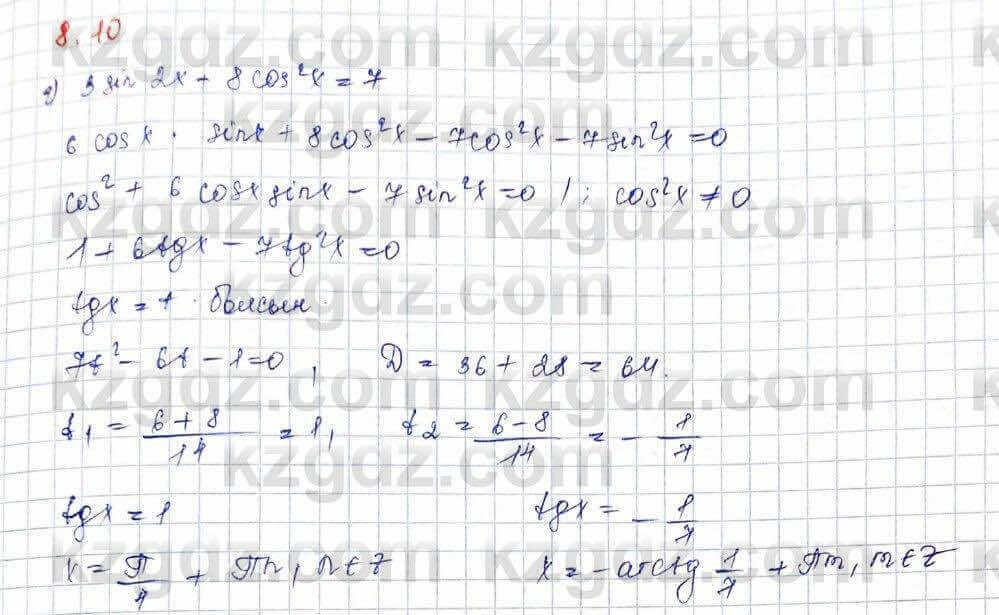 8.10
2) 3 sin 2x + 8 cos²x = 7
6 cos x · sin x + 8cos²x − 7cos²x − 7 sin²x = 0
cos² + 6 cosx sinx − 7 sin²x = 0 / : cos²x ≠ 0
1 + 6tgx − 7tg²x = 0
tgx = t болсын.
7t² − 6t − 1 = 0 , D = 36 + 28 = 64.
t₁ = (6 + 8)/14 = 1, t₂ = (6 − 8)/14 = − 1/7
tgx = 1 tgx = − 1/7
x = π/4 + πn, n ∈ Z x = −arctg 1/7 + πm, m ∈ Z
kzgdz.com kzgdz.com
kzgdz.com
kzgdz.com kzgdz.com
kzgdz.com
kzgdz.com kzgdz.com
kzgdz.com
kzgdz.com kzgdz.com